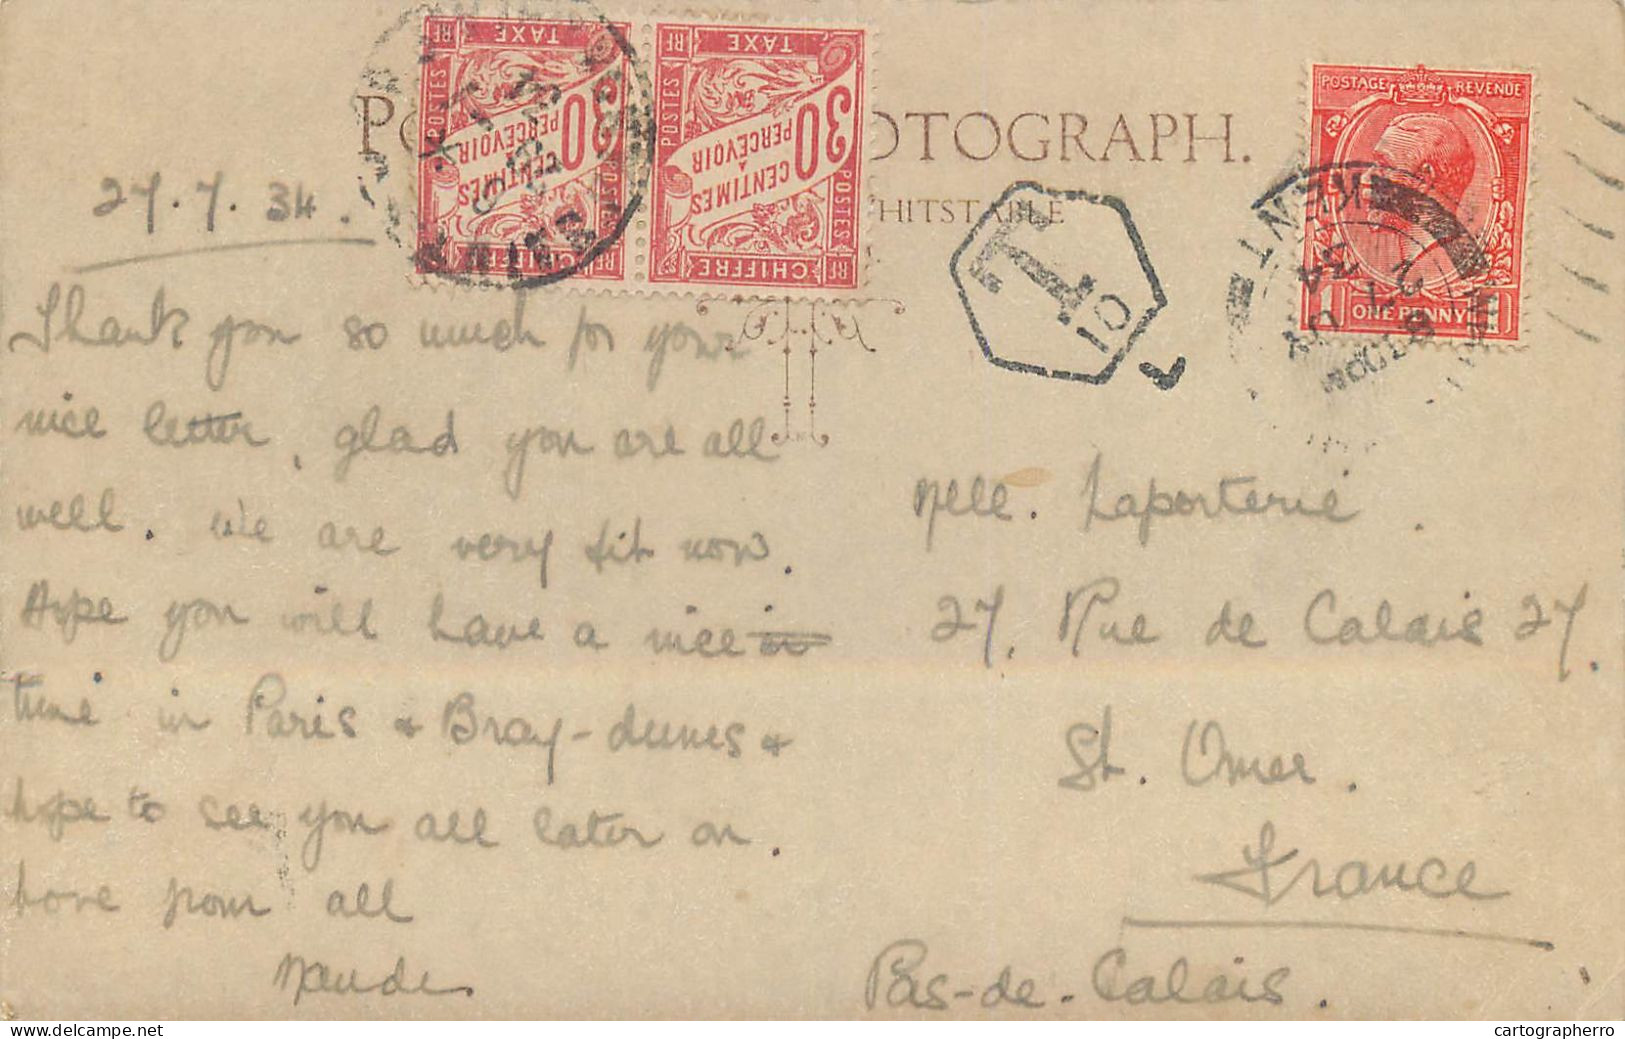 27.7.34.
Thank you so much for your
nice letter, glad you are all
well. We are very fit now.
Hope you will have a nice
time in Paris + Bray-dunes +
hope to see you all later on.
Love from all
Maude.
OTOGRAPH.
HITSTABLE
RF TAXE
POSTES
30
CENTIMES
À
PERCEVOIR
CHIFFRE RF
RF TAXE
POSTES
30
CENTIMES
À
PERCEVOIR
RF CHIFFRE
T
10
POSTAGE REVENUE
1 ONE PENNY 1
KENT
Melle. Laporterie.
27, Rue de Calais 27.
St. Omer.
France
Pas-de-Calais.
www.delcampe.net
cartographerro